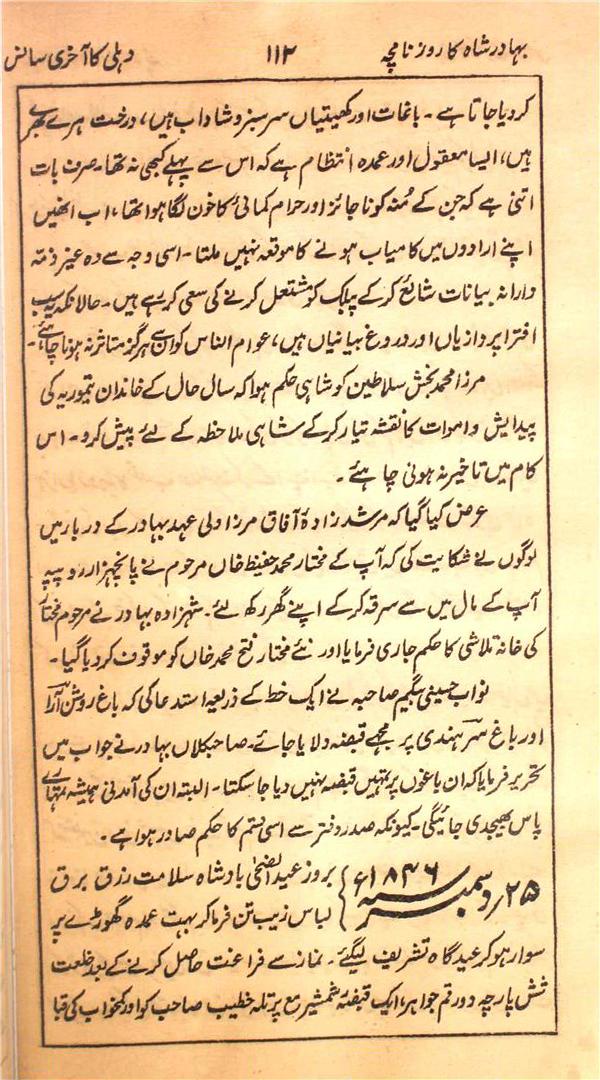 بہادر شاہ کا روزنامچہ ۱۱۲ دہلی کا آخری سانس
کر دیا جاتا ہے۔ باغات اور کھیتیاں سرسبز و شاداب ہیں، درخت ہرے بھرے
ہیں، ایسا معقول اور عمدہ انتظام ہے کہ اس سے پہلے کبھی نہ تھا۔ صرف بات
اتنی ہے کہ جن کے مُنہ کو ناجائز اور حرام کمائی کا خون لگا ہوا تھا، اب انھیں
اپنے ارادوں میں کامیاب ہونے کا موقعہ نہیں ملتا۔ اسی وجہ سے وہ غیر ذمہ
دارانہ بیانات شائع کر کے پبلک کو مشتعل کرنے کی سعی کر رہے ہیں۔ حالانکہ یہ سب
افترا پردازیاں اور دروغ بیانیاں ہیں، عوام الناس کو ان سے ہرگز متاثر نہ ہونا چاہئے۔
مرزا محمد بخش سلاطین کو شاہی حکم ہوا کہ سال حال کے خاندان تیموریہ کی
پیدایش و اموات کا نقشہ تیار کر کے شاہی ملاحظہ کے لئے پیش کرو۔ اس
کام میں تاخیر نہ ہونی چاہئے۔
عرض کیا گیا کہ مرشد زادۂ آفاق مرزا ولی عہد بہادر کے دربار میں
لوگوں نے شکایت کی کہ آپ کے مختار محمد حفیظ خاں مرحوم نے پانچہزار روپیہ
آپ کے مال میں سے سرقہ کر کے اپنے گھر رکھ لئے۔ شہزادہ بہادر نے مرحوم مختار
کی خانہ تلاشی کا حکم جاری فرمایا اور نئے مختار فتح محمد خاں کو موقوف کر دیا گیا۔
نواب حسینی بیگم صاحبہ نے ایک خط کے ذریعہ استدعا کی کہ باغ روشن آرا
اور باغ سرہندی پر مجھے قبضہ دلایا جائے۔ صاحب کلاں بہادر نے جواب میں
تحریر فرمایا کہ ان باغوں پر تمہیں قبضہ نہیں دیا جا سکتا۔ البتہ ان کی آمدنی ہمیشہ تمہارے
پاس بھیجدی جائیگی۔ کیونکہ صدر دفتر سے اسی قسم کا حکم صادر ہوا ہے۔
۲۵ دسمبر سنہ ۱۸۴۶ء } بروز عید الضحیٰ بادشاہ سلامت رزق برق
لباس زیب تن فرما کر بہت عمدہ گھوڑے پر
سوار ہو کر عید گاہ تشریف لیگئے۔ نماز سے فراغت حاصل کرنے کے بعد خلعت
شش پارچہ دو رقم جواہر، ایک قبضہ شمشیر مع پرتلہ خطیب صاحب کو اور کمخواب کی قبا